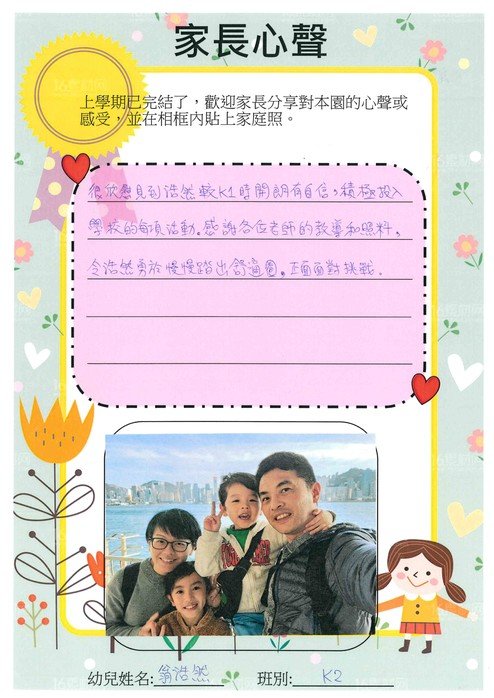 家長心聲
上學期已完結了，歡迎家長分享對本園的心聲或
感受，並在相框內貼上家庭照。
很欣慰見到浩然較K1時開朗有自信，積極投入
學校的每項活動。感謝各位老師的教導和照料，
令浩然勇於慢慢踏出舒適圈，正面面對挑戰。
幼兒姓名: 翁浩然 班別: K2